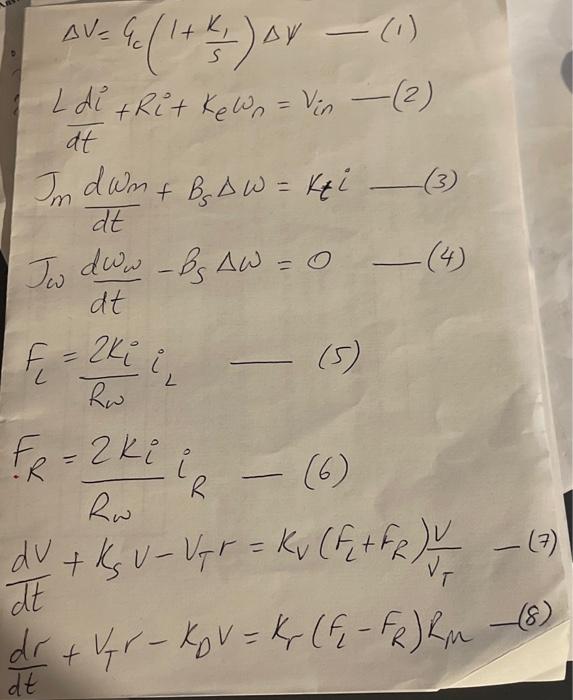 ΔV = G_c (1 + K_1/S) ΔV — (1)
L di/dt + Ri + K_e ω_n = V_in — (2)
J_m dω_m/dt + B_s Δω = K_t i — (3)
J_ω dω_ω/dt - B_s Δω = 0 — (4)
F_L = 2K_i/R_ω i_L — (5)
F_R = 2K_i/R_ω i_R — (6)
dV/dt + K_s V - V_T r = K_V (F_L + F_R) V/V_T — (7)
dr/dt + V_T r - K_D V = K_r (F_L - F_R) R_m — (8)